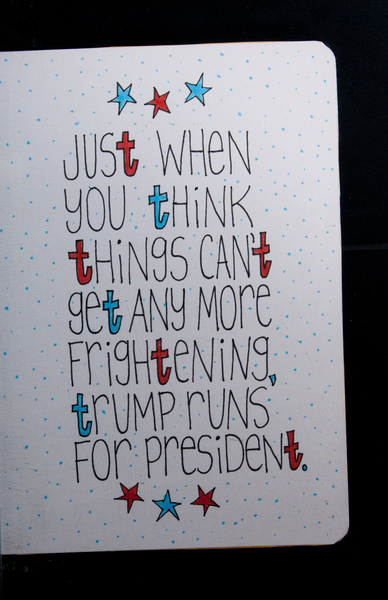 JUSt WHEN
YOU tHiNK
tHiNGS CAN't
get ANy MORe
FrightENiNg,
trUMP rUNS
FOr PresiDENt.